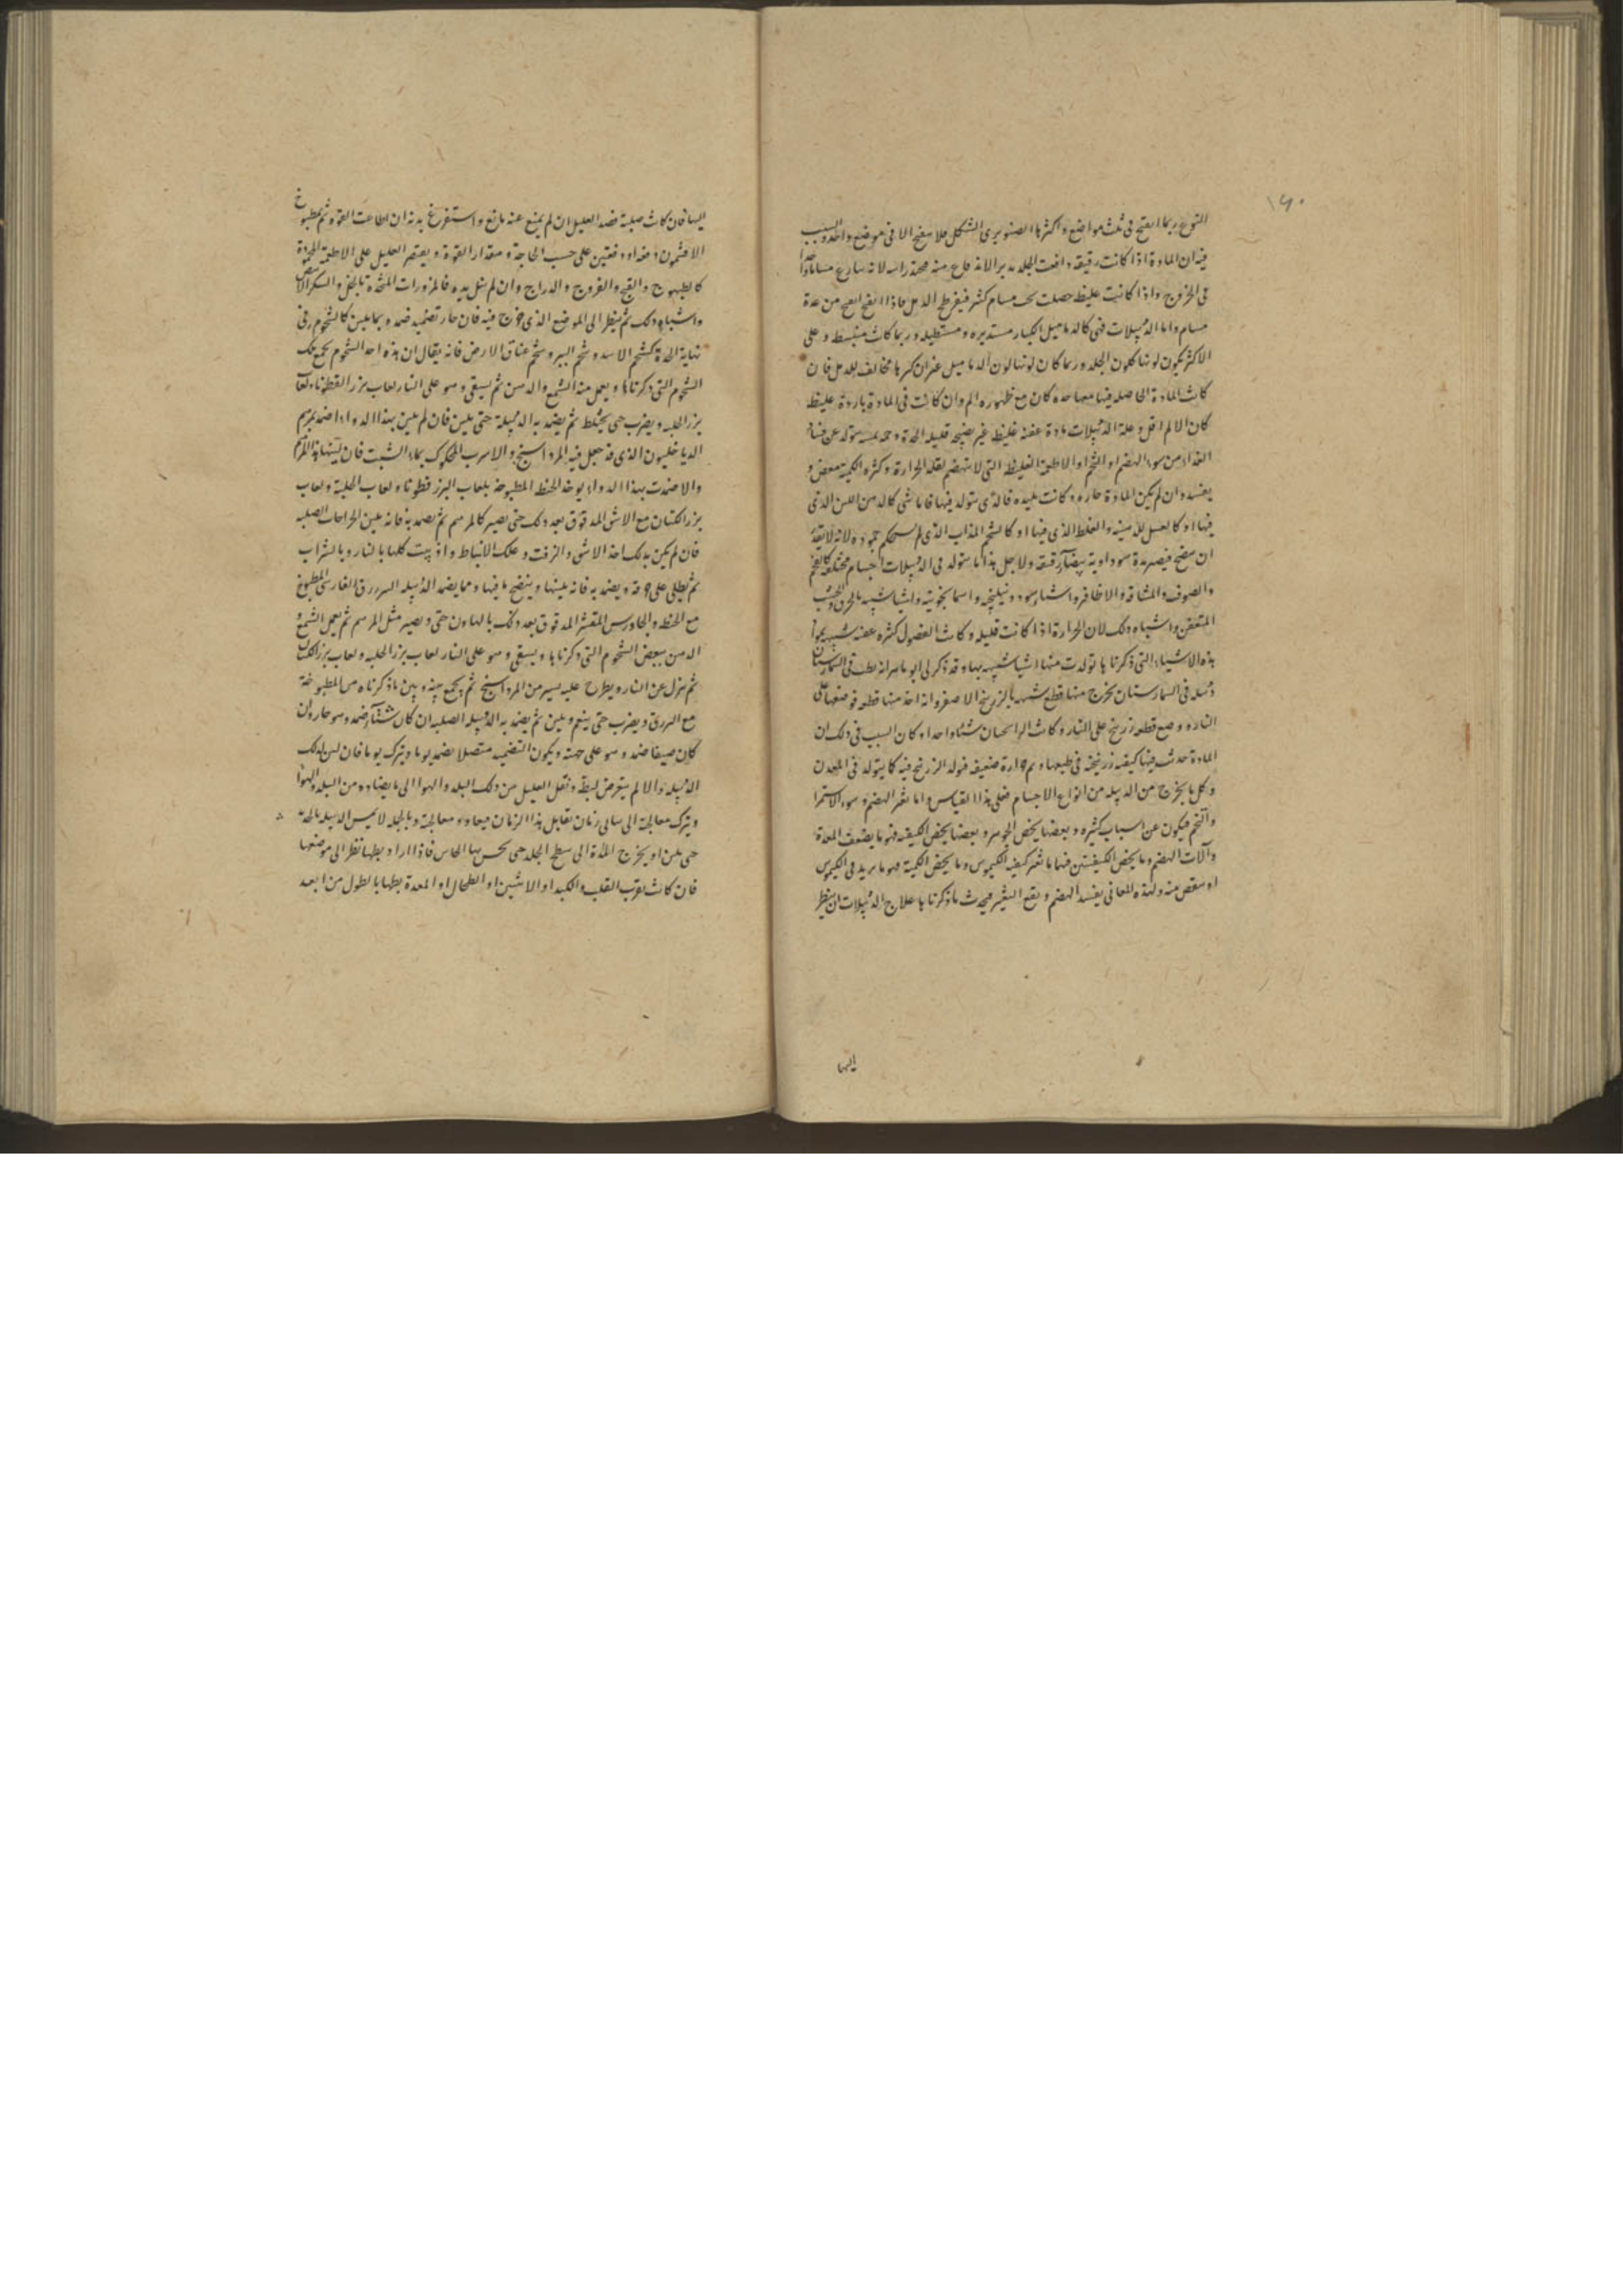 ١٩٠
النوع ربما انفتح فى ثلث مواضع واكثرها الصنوبرى الشكل فلا ينفتح الا فى موضع واحد والسبب
فيه ان المادة اذا كانت رقيقة دافعت الجلد
فى الخروج واذا كانت غليظه حصلت تحت مسام كثيره فيفرطح الدمل فاذا انفتح انفتح من عدة
مسام واما الدبيلات فهى كالدماميل الكبار مستديره ومستطيله وربما كانت منبسطه وعلى
الاكثر يكون لونها كلون الجلد وربما كان لونها لون الدماميل غير ان كبرها مخالف للدمل فان
كانت المادة الحاصله فيها معها حده كان مع ظهوره الم وان كانت فى المادة باردة غليظه
كان الالم اقل وعلة الدبيلات مادة عفنه غليظه غير نضيجه قليله الحدة
الغذا من سوء الهضم او التخم او الاطعمة الغليظه التى لا تنهضم لقلة الحرارة وكثره الكميه فتعفن و
يفسد وان لم يكن المادة حاره وكانت بليده فالذى يتولد فيها
فيها او كالعسل والغلظ الذى فيها او كالشحم المذاب الذى لم يستحكم جموده لانه لا يقدر
ان ينضج فيصير مدة سوداوية بيضاء رقيقه ولاجل هذا ما يتولد فى الدبيلات اجسام مختلفه كالفحم
والصوف والمشاقة والاظافر واشياء سود ونيلنجيه واسمانجونيه واشيا شبيه بالخزف والخشب
المتعفن واشباه ذلك لان الحرارة اذا كانت قليله وكانت الفضول كثره عفنه شبيه بمواد
هذه الاشياء التى ذكرناها تولدت منها اشيا شبيه بها وقد ذكر لى ابو ماهر انه بط فى البيمارستان
دبيله فى البيمارستان فخرج منها قطع شبيه بالزرنيخ الاصفر وانه اخذ منها قطعه فوضعها على
النار ووضع قطعه زرنيخ على النار وكانت الرائحتان شيئا واحدا وكان السبب فى ذلك ان
المادة حدثت فيها كيفيه زرنيخيه فى طبعها وثم حرارة ضعيفه فولد الزرنيخ فيه كما يتولد فى المعدن
وكل ما يخرج من الدبيله من انواع الاجسام فعلى هذا القياس واما تغير الهضم وسوء الاستمرا
والتخم فيكون عن اسباب كثيره وبعضها يخص الجوهر وبعضها يخص الكيفيه فهو ما يضعف المعدة
وآلات الهضم وما يخص الكيفيتين فهما ما تغير كيفيه الكيموس وما يخص الكمية فهو ما يزيد فى الكيموس
او ينقص منه ولهذه المعانى يفسد الهضم ويقع التغير فيحدث ما ذكرناها علاج الدبيلات ان ينظر
اليها
اليها فان كانت صلبة فصد العليل ان لم يمنع عنه مانع واستفرغ بدنه ان طاعت القوه ثم بمطبوخ
الافتيمون دفعه او دفعتين على حسب الحاجة ومقدار القوة ويقتصر العليل على الاطعمة المحمودة
كالطيهوج والقبج والفروج والدراج وان لم ينل يده فالمزورات المتخذة بالخل والسكر
واشباه ذلك ثم ينظر الى الموضع الذى خرج فيه فان حار تضميد ضمده بما يلين كالشحوم وفى
نهاية الحدة كشحم الاسد وشحم الببر وشحم عناق الارض فانه يقال ان هذه احد الشحوم يجمع تلك
الشحوم التى ذكرناها ويعمل منه الشمع والدهن ثم يسقى وهو على النار لعاب بزر القطونا ولعاب
بزر الحلبه ويضرب حتى يختلط ثم يضمد به الدبيلة حتى يلين فان لم يلين بهذا الدواء اضمد بمرهم
الدياخليون الذى قد جعل فيه المرداسنج والاسرب المحكوك بماء الشبت فان لينها هذا المرهم
والا ضمدت بهذا الدواء يوخذ الحنطه المطبوخة بلعاب البزر قطونا ولعاب الحلبة ولعاب
بزر الكتان مع الاشق المدقوق بعد ذلك حتى يصير كالمرهم ثم يضمد به فانه يلين الجراحات الصلبه
فان لم يكن بذلك اخذ الاشق والزفت وعلك الانباط واذيبت كلها بالنار وبالشراب
ثم يطلى على خرقة ويضمد به فانه يلينها وينضج ما فيها ومما يضمد الدبيله الفارسى المطبوخ
مع الحنطه والجاورس المقشر المدقوق بعد ذلك بالهاون حتى ويصير مثل المرهم ثم يعمل الشمع و
الدهن ببعض الشحوم التى ذكرناها ويسقى وهو على النار لعاب بزر الحلبه ولعاب بزر الكتان
ثم ينزل عن النار ويطرح عليه يسير من المرداسنج ثم يجمع بينه وبين ما ذكرناه من المطبوخة
مع ويضرب حتى ينعم ويلين ثم يضمد به الدبيله الصلبه ان كان شتاء ضمد وهو حار وان
كان صيفا ضمد وهو على جهته ويكون التضميد متصلا يضمد يوما ويترك يوما فان لين بذلك
الدبيله والا لم يتعرض لبطه ونقل العليل من ذلك البلد والهوا الى ما يضاده من البلد والهوا
ويترك معالجته الى زمان تقابل هذا الزمان فيعاود معالجته وبالجمله لا يمس الدبيله بالحديد
حتى يلين او يخرج المدة الى سطح الجلد حتى يحس بها الحاس فاذا اراد بطها نظر الى موضعها
فان كانت بقرب القلب والكبد او الانثيين او الطحال او المعدة بطها بالطول من ابعد